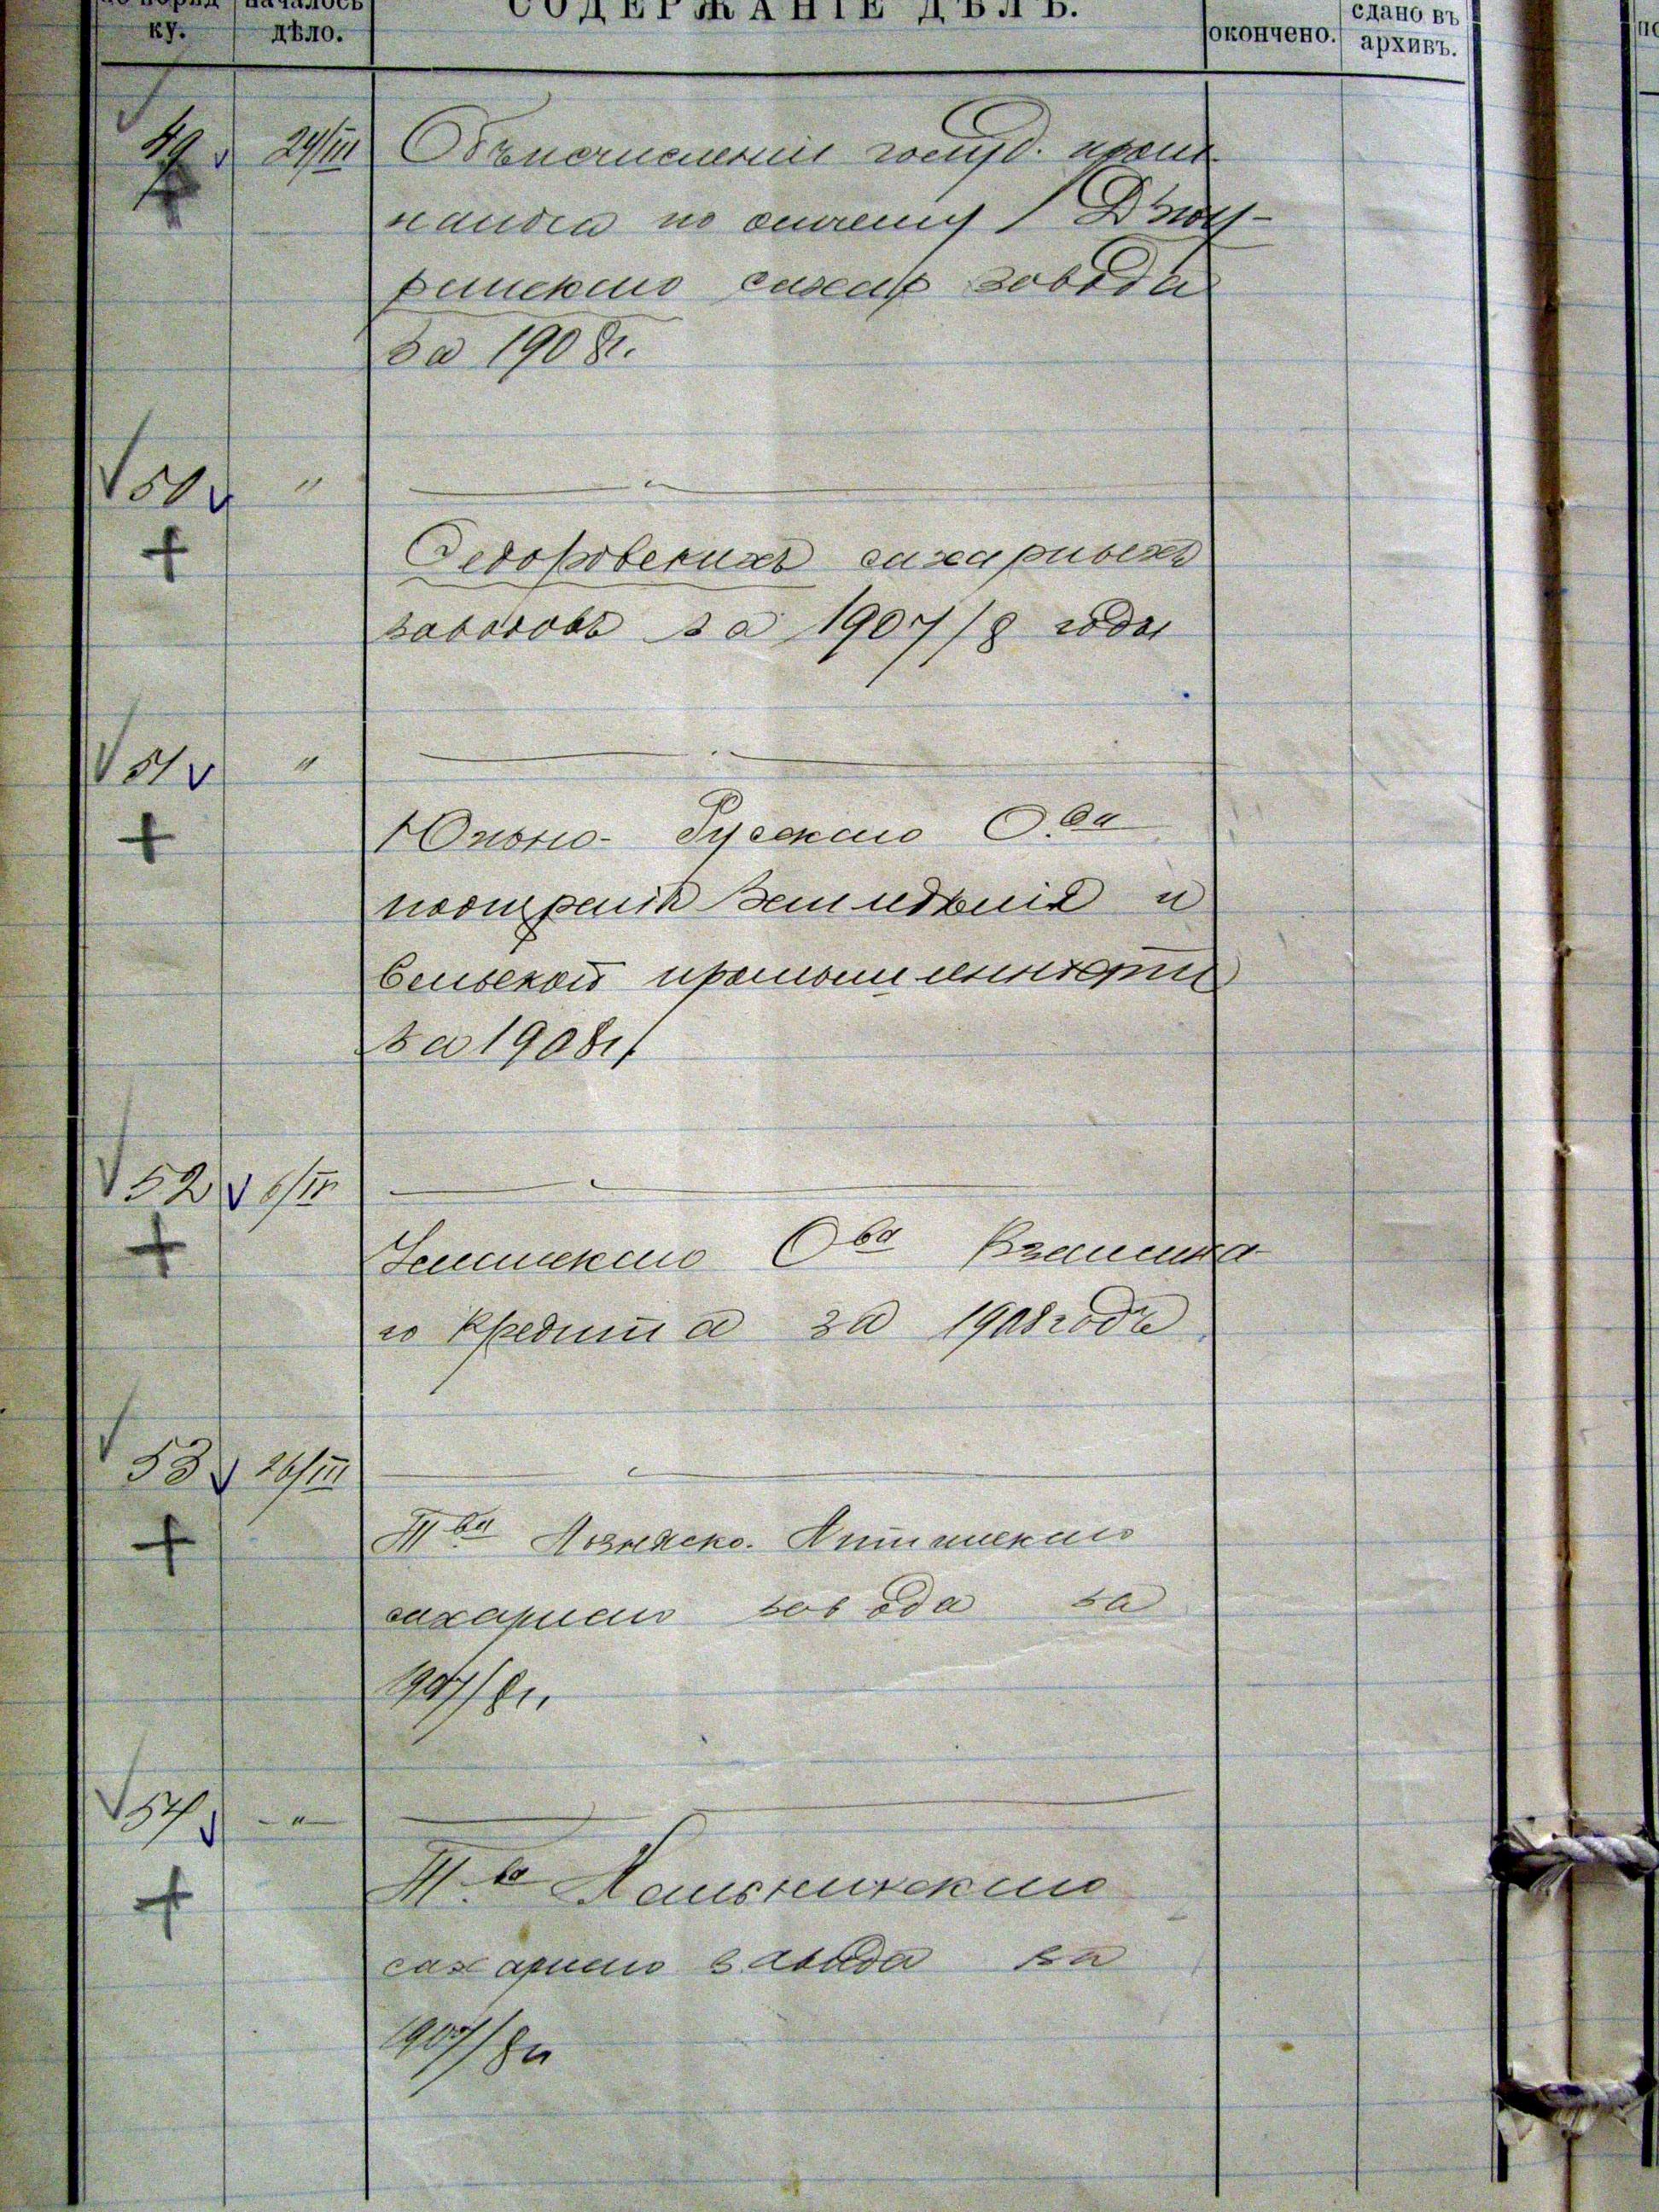 по поряд
ку.
началось
дѣло.
СОДЕРЖАНІЕ ДѢЛЪ.
окончено.
сдано въ
архивъ.
49 24/III Объ исчисленіи госуд. пром.
налога по отчету Джу-
ринскаго сахар завода
за 1908 г.
50 "
Федоровскихъ сахарныхъ
заводовъ за 1907/8 годы
51 "
Южно-Русскаго О.ва
поощренія Земледѣлія и
Сельской промышленности
за 1908 г.
52 6/IV
О-ва Взаимна-
го Кредита за 1908 годъ
53 26/III
Т-ва
сахарнаго завода за
1907/8 г.
54 -"-
Т-ва Хаьникскаго
сахарнаго завода за
1907/8 г.